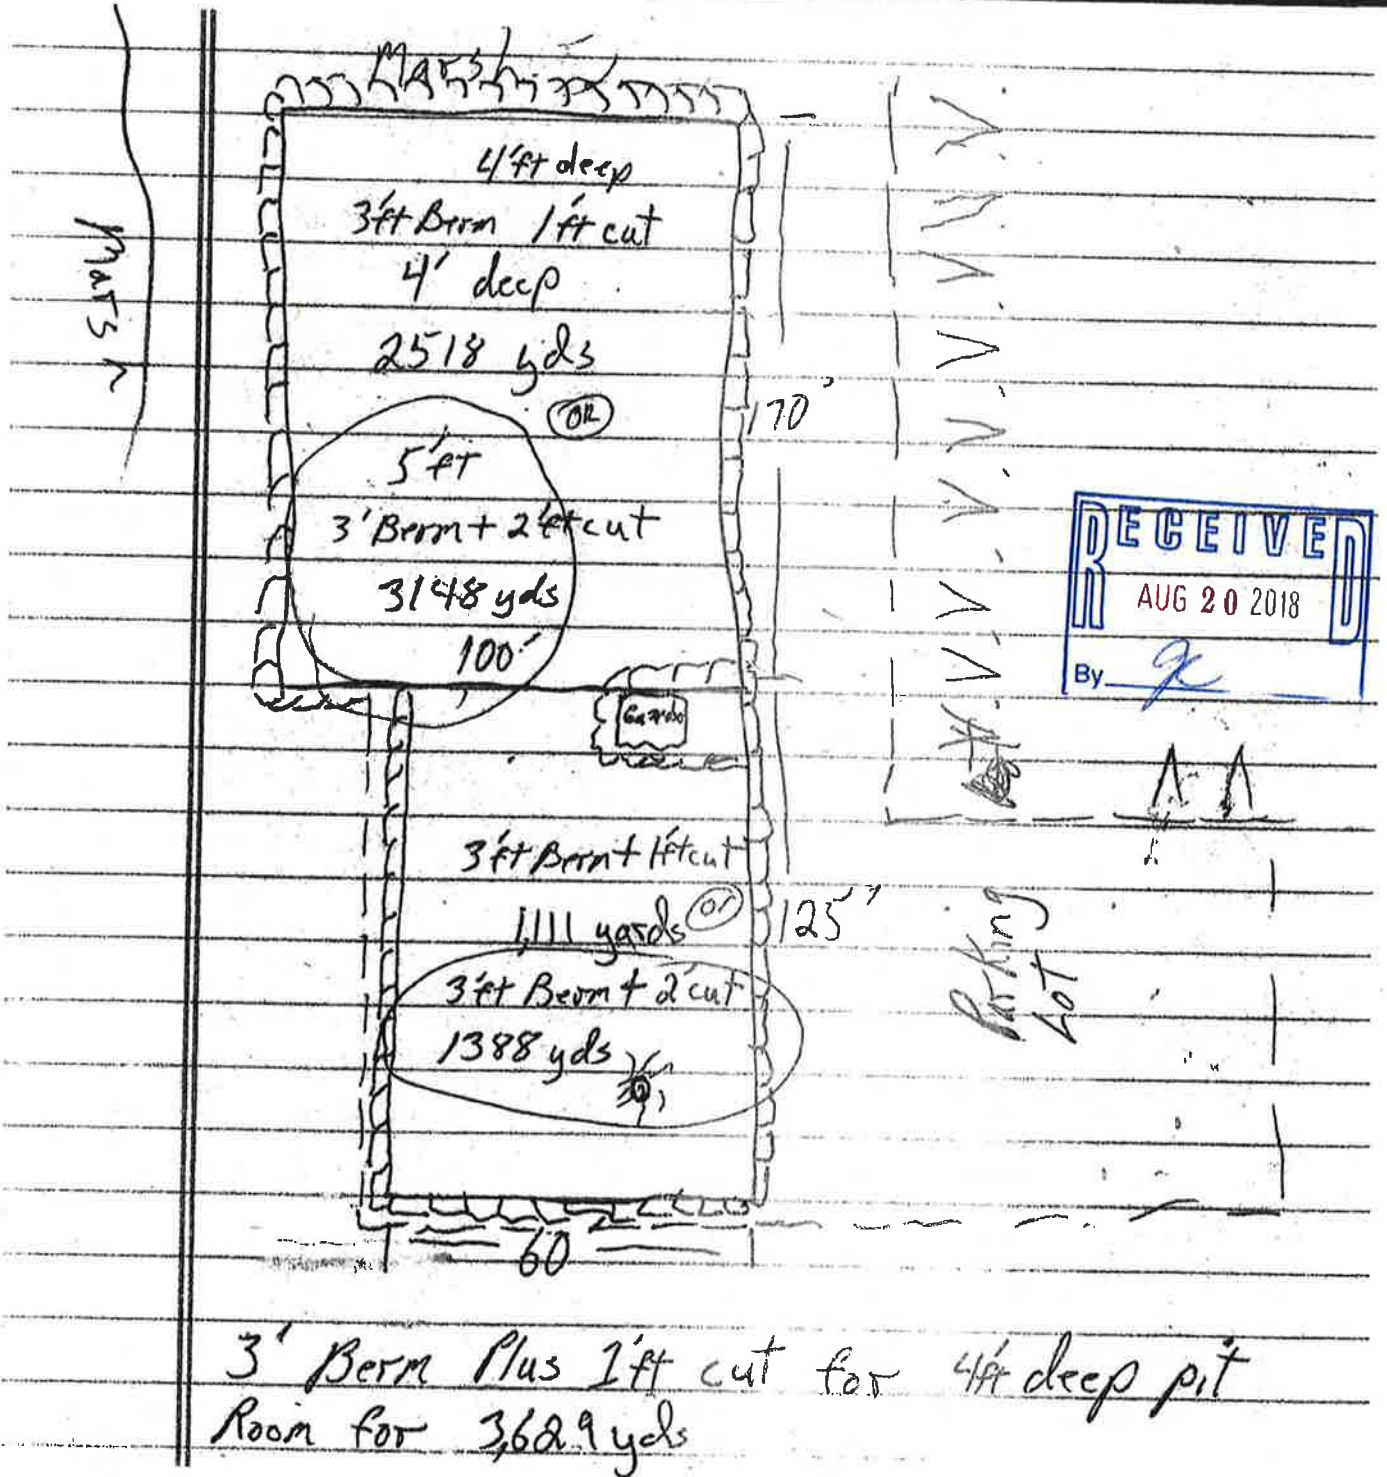 Marsh
4' ft deep
3' ft Berm 1' ft cut
4' deep
2518 yds
OR
170'
5' ft
3' Berm + 2' ft cut
3148 yds
100'
Gazebo
Marsh
RECEIVED
AUG 20 2018
By
3' ft Berm + 1' ft cut
1,111 yards or
125'
3' ft Berm + 2' cut
1388 yds
Parking
Lot
60
3' Berm Plus 1' ft cut for 4 ft deep pit
Room for 3,629 yds